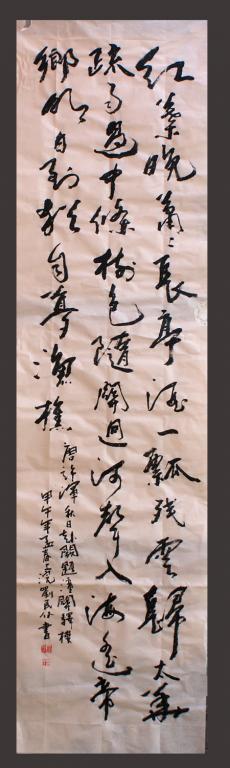 红葉晚蕭〻長亭酒一瓢残雲歸太華
疎雨過中條樹色隨關迥河聲入海遙帝
鄉明日到猶自夢漁樵
唐許渾秋日赴闕題潼關驛樓
甲午年孟春上浣劉民書